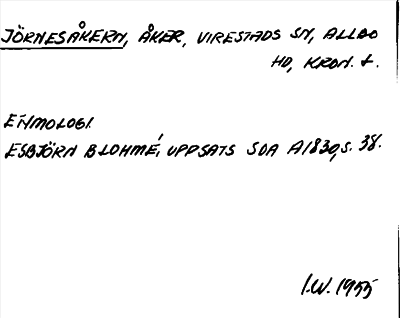 JÖRNESÅKERN, ÅKER, VIRESTADS SN, ALLBO
HD, KRON. L.
ETYMOLOGI.
ESBJÖRN BLOHMÉ, UPPSATS SOA A1830, S. 38.
I.W. 1955